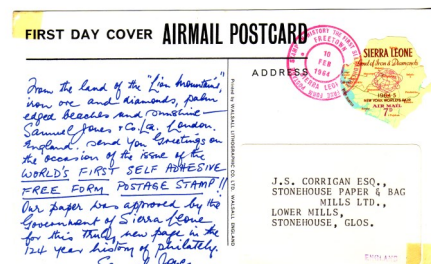 FIRST DAY COVER AIRMAIL POSTCARD
From the land of the "Lion Mountain",
iron ore and diamonds, palm
edged beaches and sunshine
Samuel Jones & Co. Ltd. London,
England. send you Greetings on
the occasion of the issue of the
WORLD'S FIRST SELF ADHESIVE
FREE FORM POSTAGE STAMP!!
Our paper was approved by the
Government of Sierra Leone
for this truly new page in the
124 year history of philately.
Printed by WALSALL LITHOGRAPHIC CO. LTD. WALSALL ENGLAND
ADDRESS
FREETOWN
10
FEB
1964
SIERRA LEONE
Land of Iron & Diamonds
1964-5
NEW YORK WORLD'S FAIR
AIR MAIL
7
J.S. CORRIGAN ESQ.,
STONEHOUSE PAPER & BAG
MILLS LTD.,
LOWER MILLS,
STONEHOUSE, GLOS.
ENGLAND